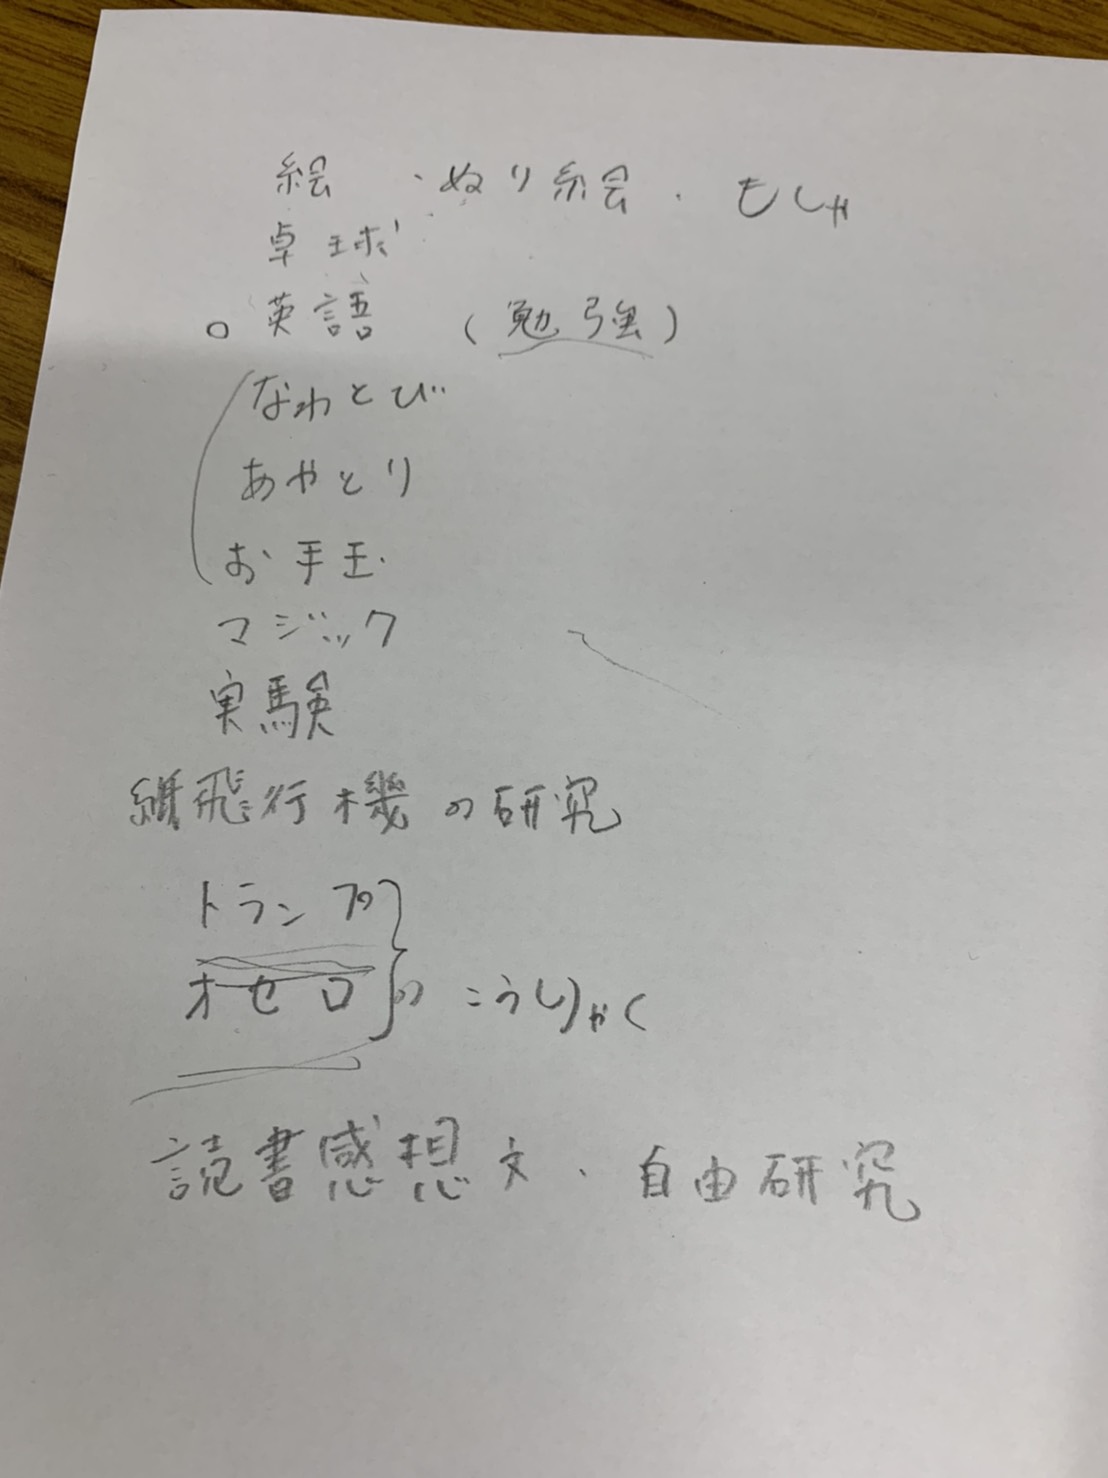 絵 ・ぬり絵 ・ もしゃ
卓球
○ 英語 (勉強)
なわとび
あやとり
お手玉
マジック
実験
紙飛行機の研究
トランプ
オセロ } の こうりゃく
読書感想文 ・ 自由研究